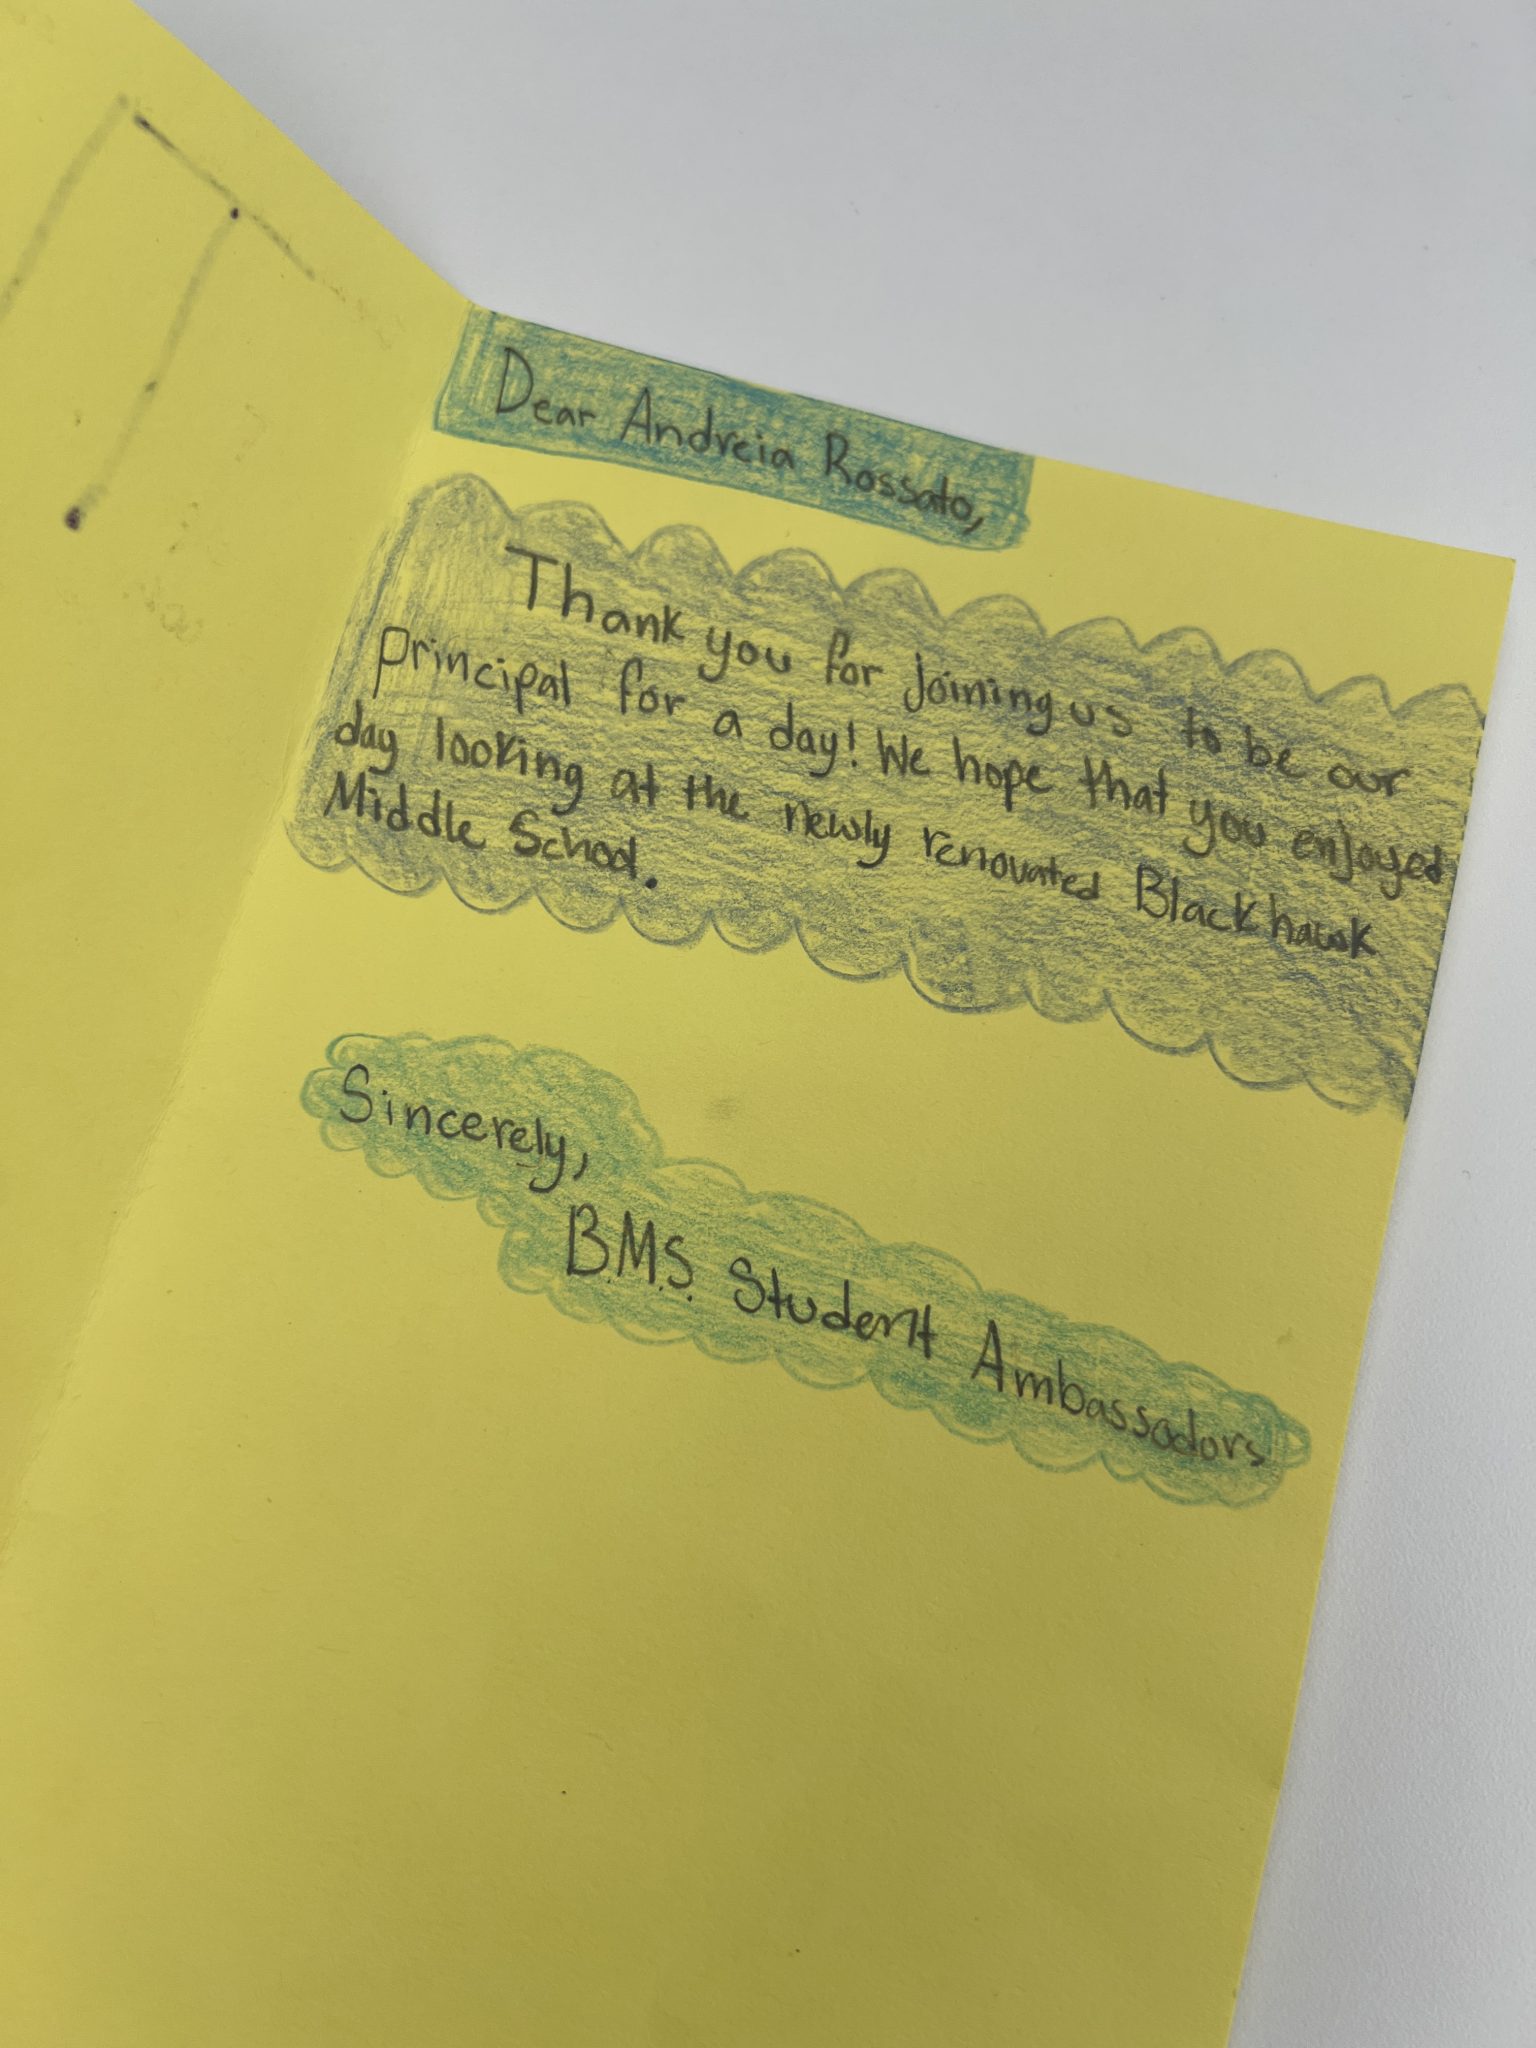 Dear Andreia Rossato,
Thank you for joining us to be our
principal for a day! We hope that you enjoyed
day looking at the newly renovated Blackhawk
Middle School.
Sincerely,
B.M.S. Student Ambassadors